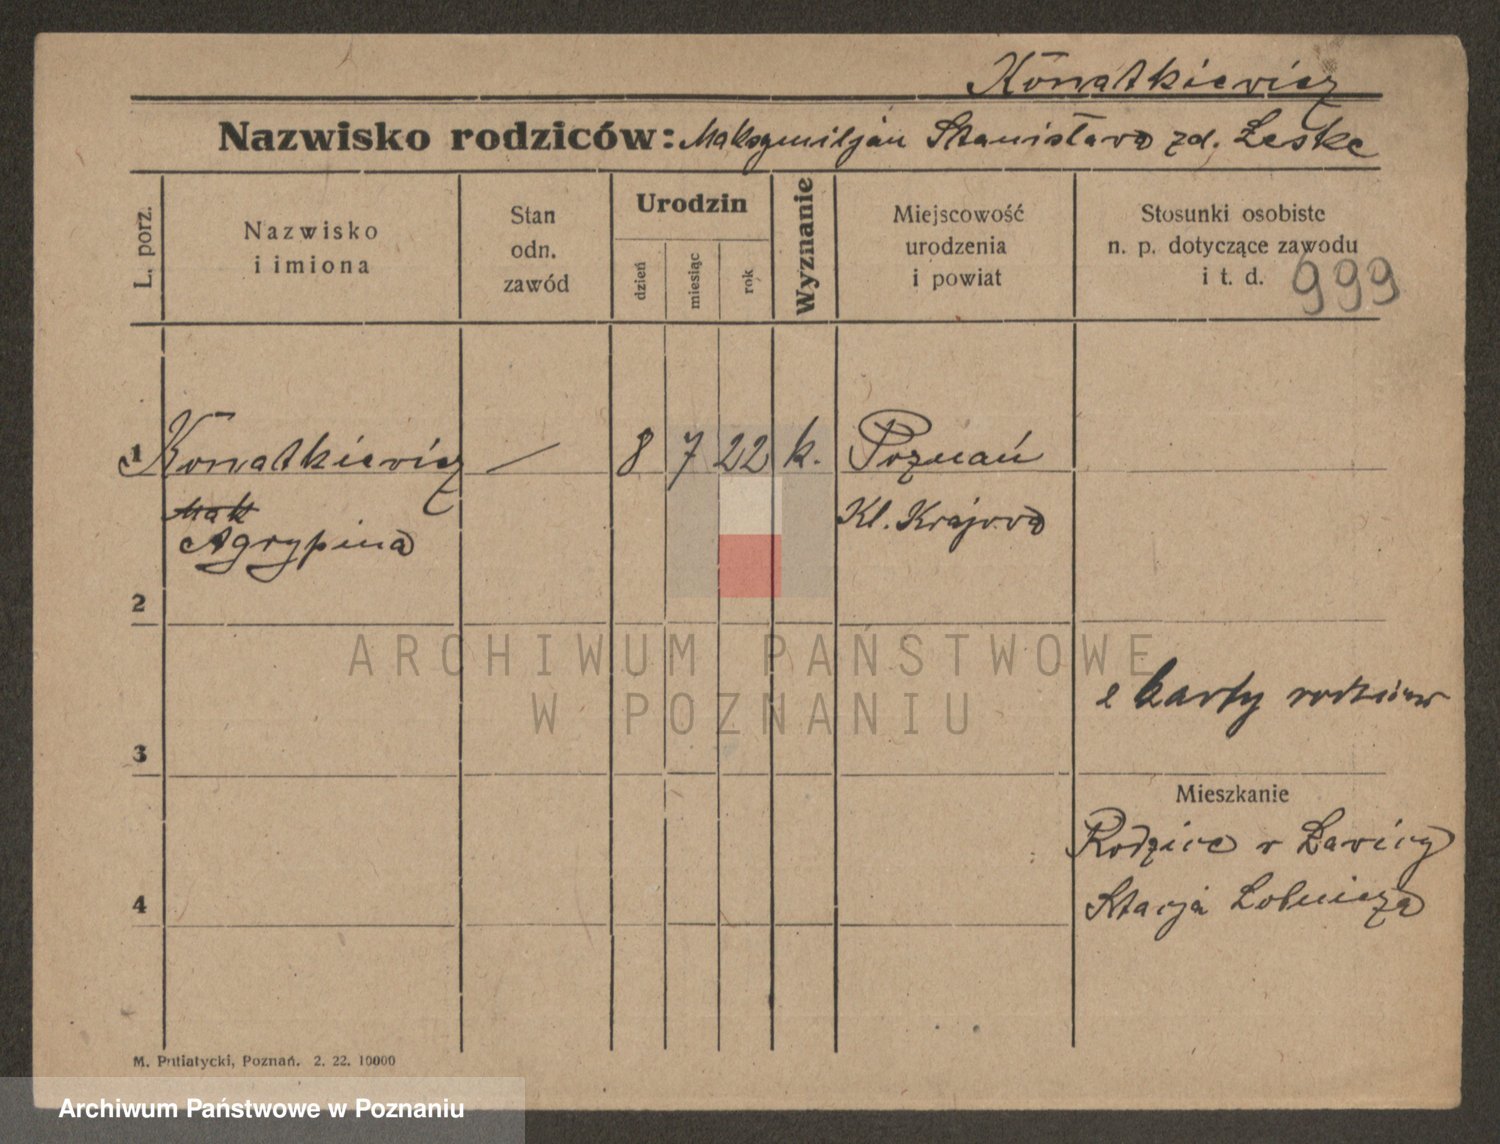 Konatkiewicz
Nazwisko rodziców: Maksymiljan Stanisława zd. Leske
L. porz.
Nazwisko
i imiona
Stan
odn.
zawód
Urodzin
dzień
miesiąc
rok
Wyznanie
Miejscowość
urodzenia
i powiat
Stosunki osobiste
n. p. dotyczące zawodu
i t. d.
999
1 Konatkiewicz — 8 7 22 k. Poznań
Mak
Agrypina
Kl. Krajowa
2
ARCHIWUM PAŃSTWOWE
W POZNANIU
z karty rodziców
3
Mieszkanie
Rodzice w Ławicy
Stacja Lotnicza
4
M. Putiatycki, Poznań. 2. 22. 10000
Archiwum Państwowe w Poznaniu